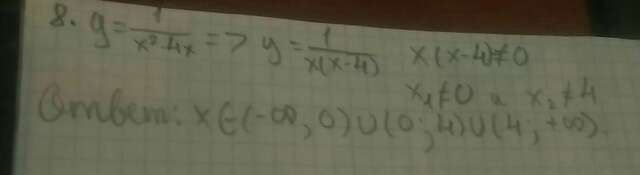 8. y = 1/(x²-4x) => y = 1/(x(x-4)) x(x-4)≠0
x₁≠0 и x₂≠4
Ответ: x∈(-∞, 0)∪(0; 4)∪(4; +∞).